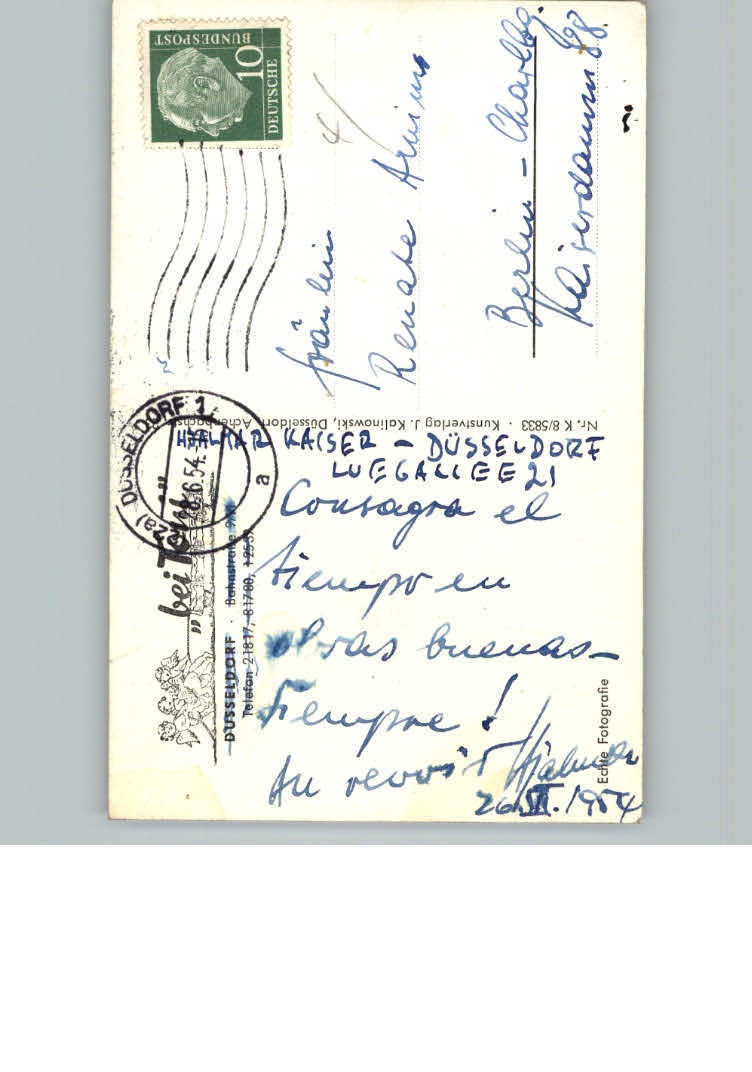 DEUTSCHE
BUNDESPOST
10
DÜSSELDORF 1
a
6.54
Fräulein
Renate
Berlin – Charlbg.
Kaiserdamm 88
Nr. K 8/5833 · Kunstverlag J. Kalinowski, Düsseldorf,
HJALMAR KAISER – DÜSSELDORF
LUEGALLEE 21
„bei
DÜSSELDORF · Bahnstraße
Telefon 21817, 81788,
Consagra el
tiempo en
obras buenas –
Siempre!
Au revoir Hjalmar
26.VI.1954
Echte Fotografie